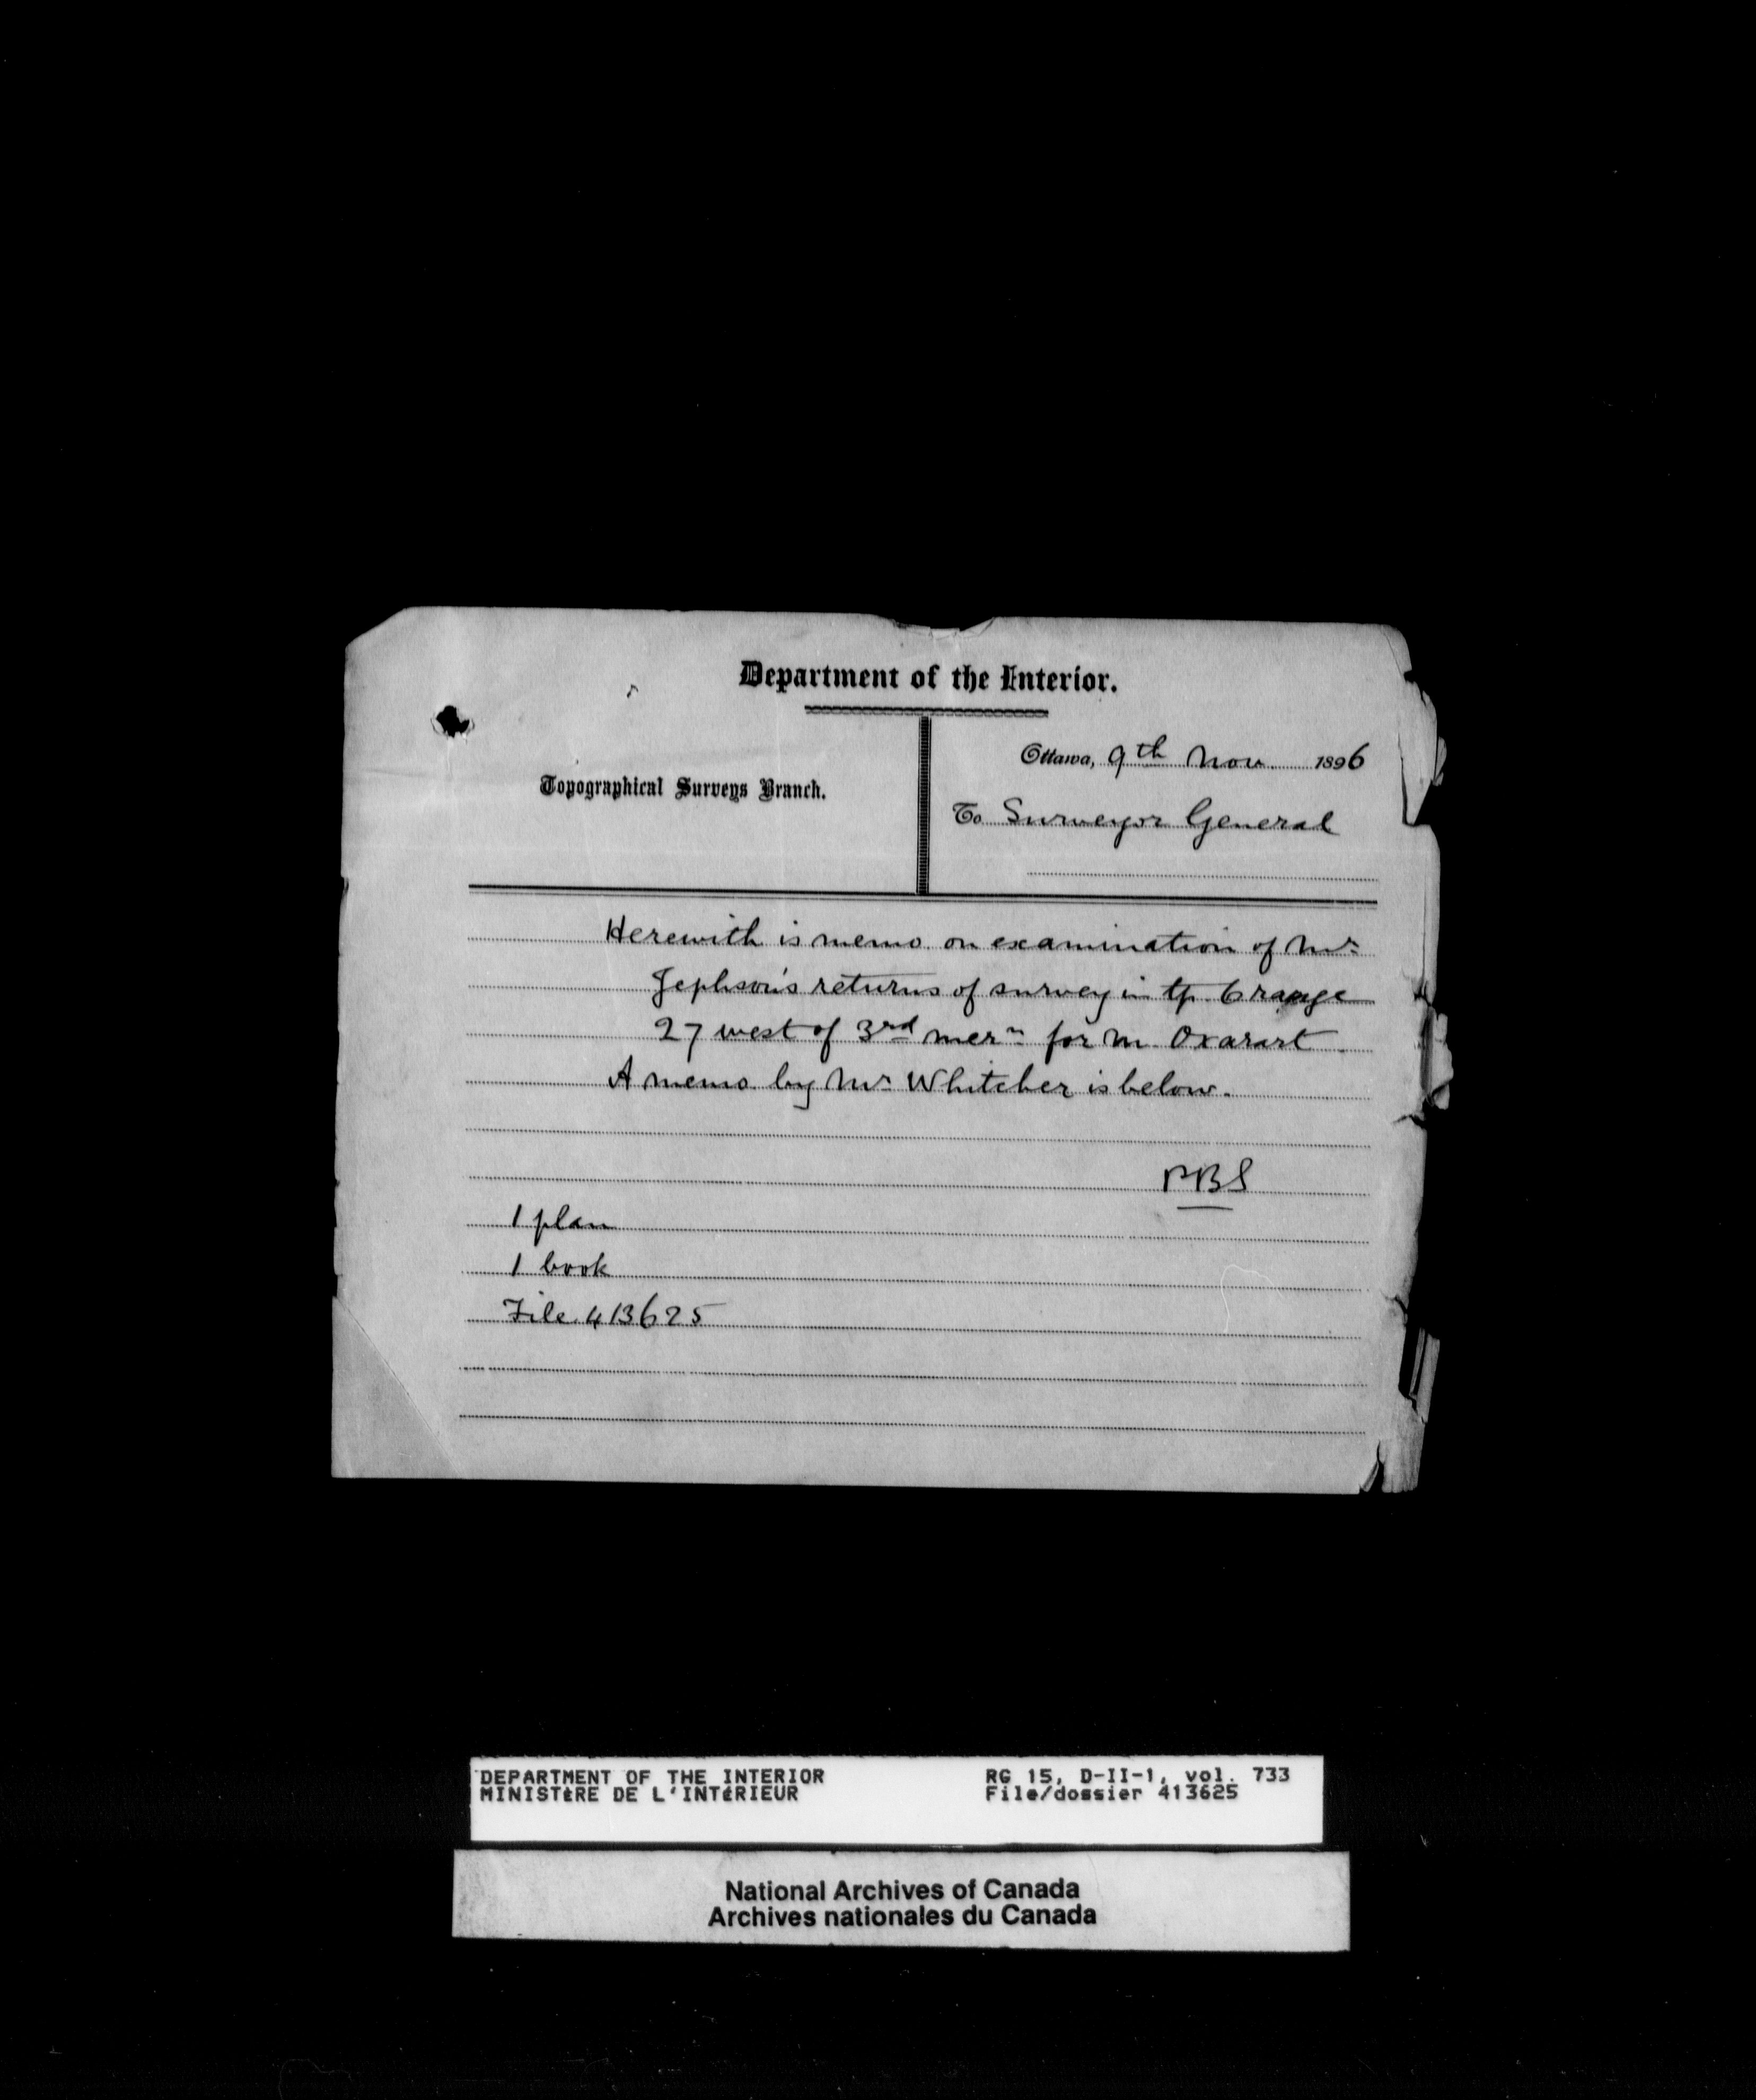 Department of the Interior.
Topographical Surveys Branch.
Ottawa, 9th Nov 1896
To Surveyor General
Herewith is memo on examination of Mr
Jephson's returns of survey in tp. 6 range
27 west of 3rd mern for M. Oxarart
A memo by Mr Whitcher is below.
PBS
1 plan
1 book
File 413625
DEPARTMENT OF THE INTERIOR
MINISTÈRE DE L'INTÉRIEUR
RG 15, D-II-1, vol. 733
File/dossier 413625
National Archives of Canada
Archives nationales du Canada